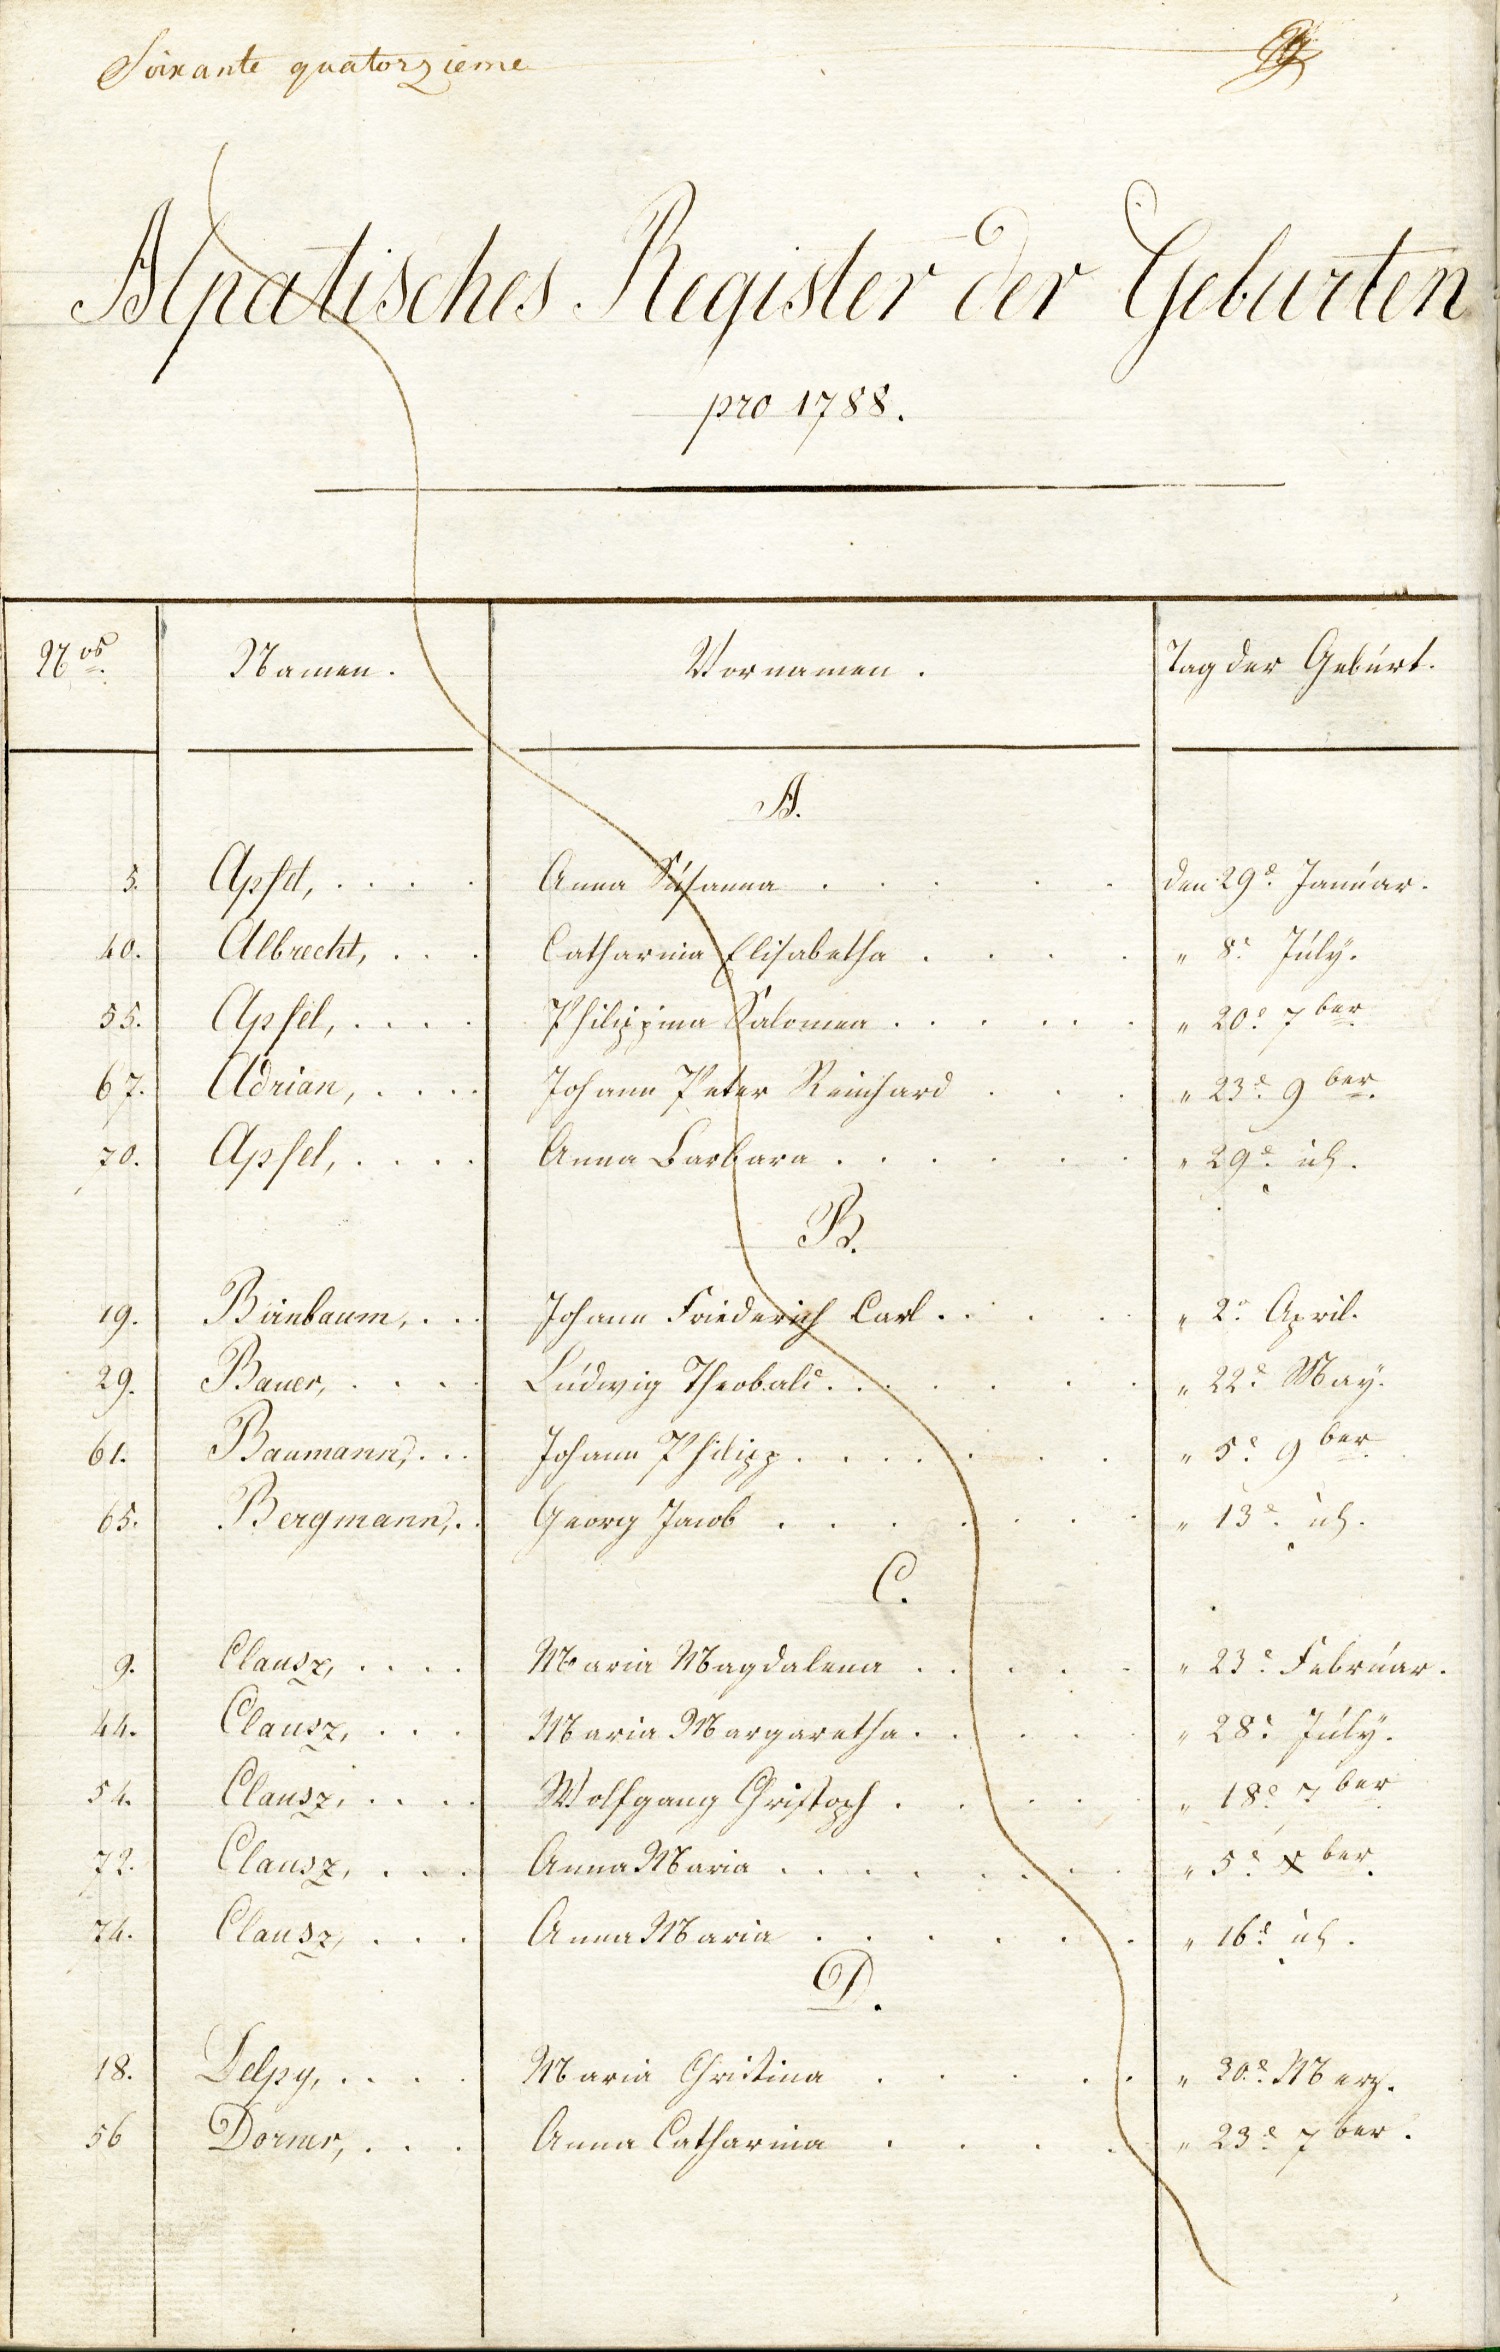 Soixante quatorzieme
Alpatisches Register der Geburten
pro 1788.
Nos. Namen. Vornamen. Tag der Geburt.
A.
5. Apfel, .... Anna Susanna ..... den 29e. Januar.
40. Albrecht, ... Catharina Elisabetha .... " 8e. July.
55. Apfel, .... Philippina Salomea ..... " 20e. 7ber
67. Adrian, .... Johann Peter Reinhard ... " 23e. 9ber.
70. Apfel, .... Anna Barbara ...... " 29e. id.
B.
19. Birnbaum, ... Johann Friederich Carl .... " 2e. April.
29. Bauer, .... Ludwig Theobald ...... " 22e. May.
61. Baumann, ... Johann Philipp ...... " 5e. 9ber.
65. Bergmann, .. Georg Jacob ...... " 13e. id.
C.
9. Clausz, .... Maria Magdalena ..... " 23e. Februar.
44. Clausz, ... Maria Margaretha ..... " 28e. July.
54. Clausz, .... Wolfgang Christoph ..... " 18e. 7ber
72. Clausz, ... Anna Maria ...... " 5e. Xber.
74. Clausz, ... Anna Maria ...... " 16e. id.
D.
18. Delpy, .... Maria Christina ..... " 30e. Merz.
56 Dorner, ... Anna Catharina .... " 23e. 7ber.